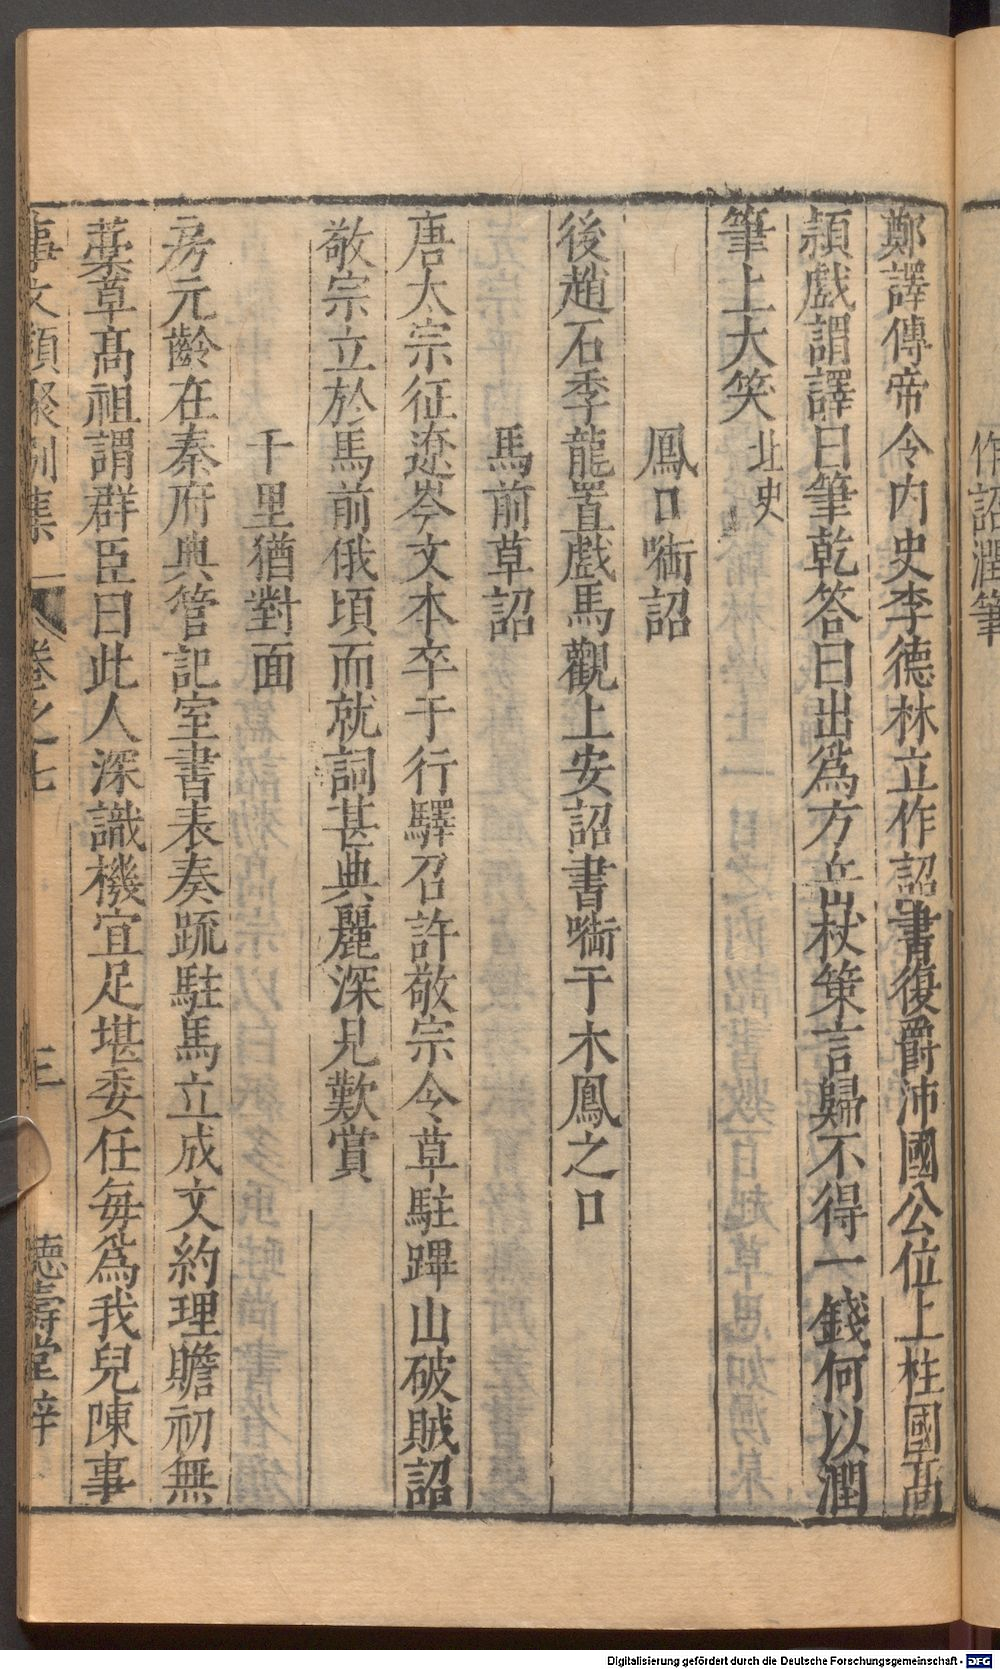 作詔潤筆
鄭譯傳帝令内史李德林立作詔書復爵沛國公位上柱國髙
熲戲謂譯曰筆乾答曰出爲方岳杖策言歸不得一錢何以潤
筆上大笑北史
鳳口㘅詔
後趙石季龍置戲馬觀上安詔書㘅于木鳳之口
馬前草詔
唐太宗征遼岑文本卒于行驛召許敬宗令草駐蹕山破賊詔
敬宗立於馬前俄頃而就詞甚典麗深見歎賞
千里猶對面
房元齡在秦府典管記室書表奏疏駐馬立成文約理贍初無
藁草髙祖謂群臣曰此人深識機宜足堪委任每爲我兒陳事
事文類聚別集 卷之七 三 德壽堂梓
Digitalisierung gefördert durch die Deutsche Forschungsgemeinschaft - DFG